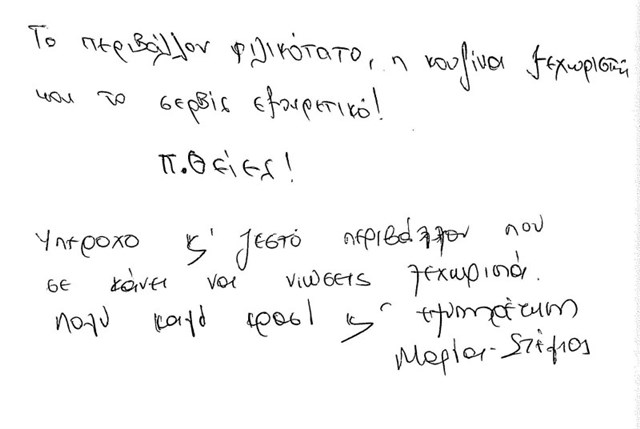 Το περιβάλλον φιλικότατο, η κουζίνα ξεχωριστή
και το σερβίς εξαιρετικό!
Π.Θείες!
Υπέροχο κ' ζεστό περιβάλλον που
σε κάνει να νιώσεις ξεχωριστά.
Πολύ καλό κρασί κ'
Μαρία - Στέφιος